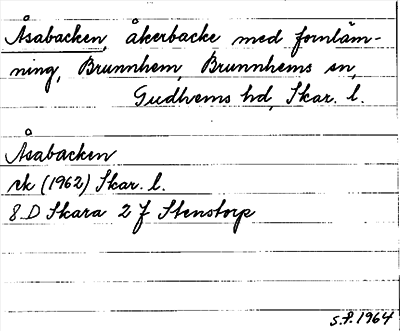 Åsabacken, åkerbacke med fornläm-
ning, Brunnhem, Brunnhems sn,
Gudhems hd, Skar. l.
Åsabacken
ek (1962) Skar. l.
8.D Skara 2 f Stenstorp
S.P. 1964